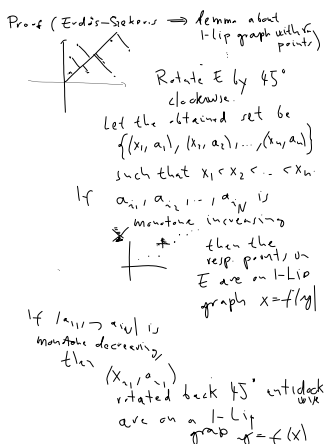 Proof (Erdős-Szekeres ⟹ lemma about
1-Lip graph with √n
points)
Rotate E by 45°
clockwise.
Let the obtained set be
{(x₁, a₁), (x₂, a₂), ..., (xₙ, aₙ)}
such that x₁ < x₂ < .. < xₙ.
If a_{i₁}, a_{i₂}, ..., a_{i_N} is
monotone increasing
then the
resp. points in
E are on 1-Lip
graph x = f(y)
If (a_{i₁}, ..., a_{i_N}) is
monotone decreasing,
then
(x_{i₁}, a_{i₁})
rotated back 45° anticlock
wise
are on a 1-Lip
graph y = f(x)